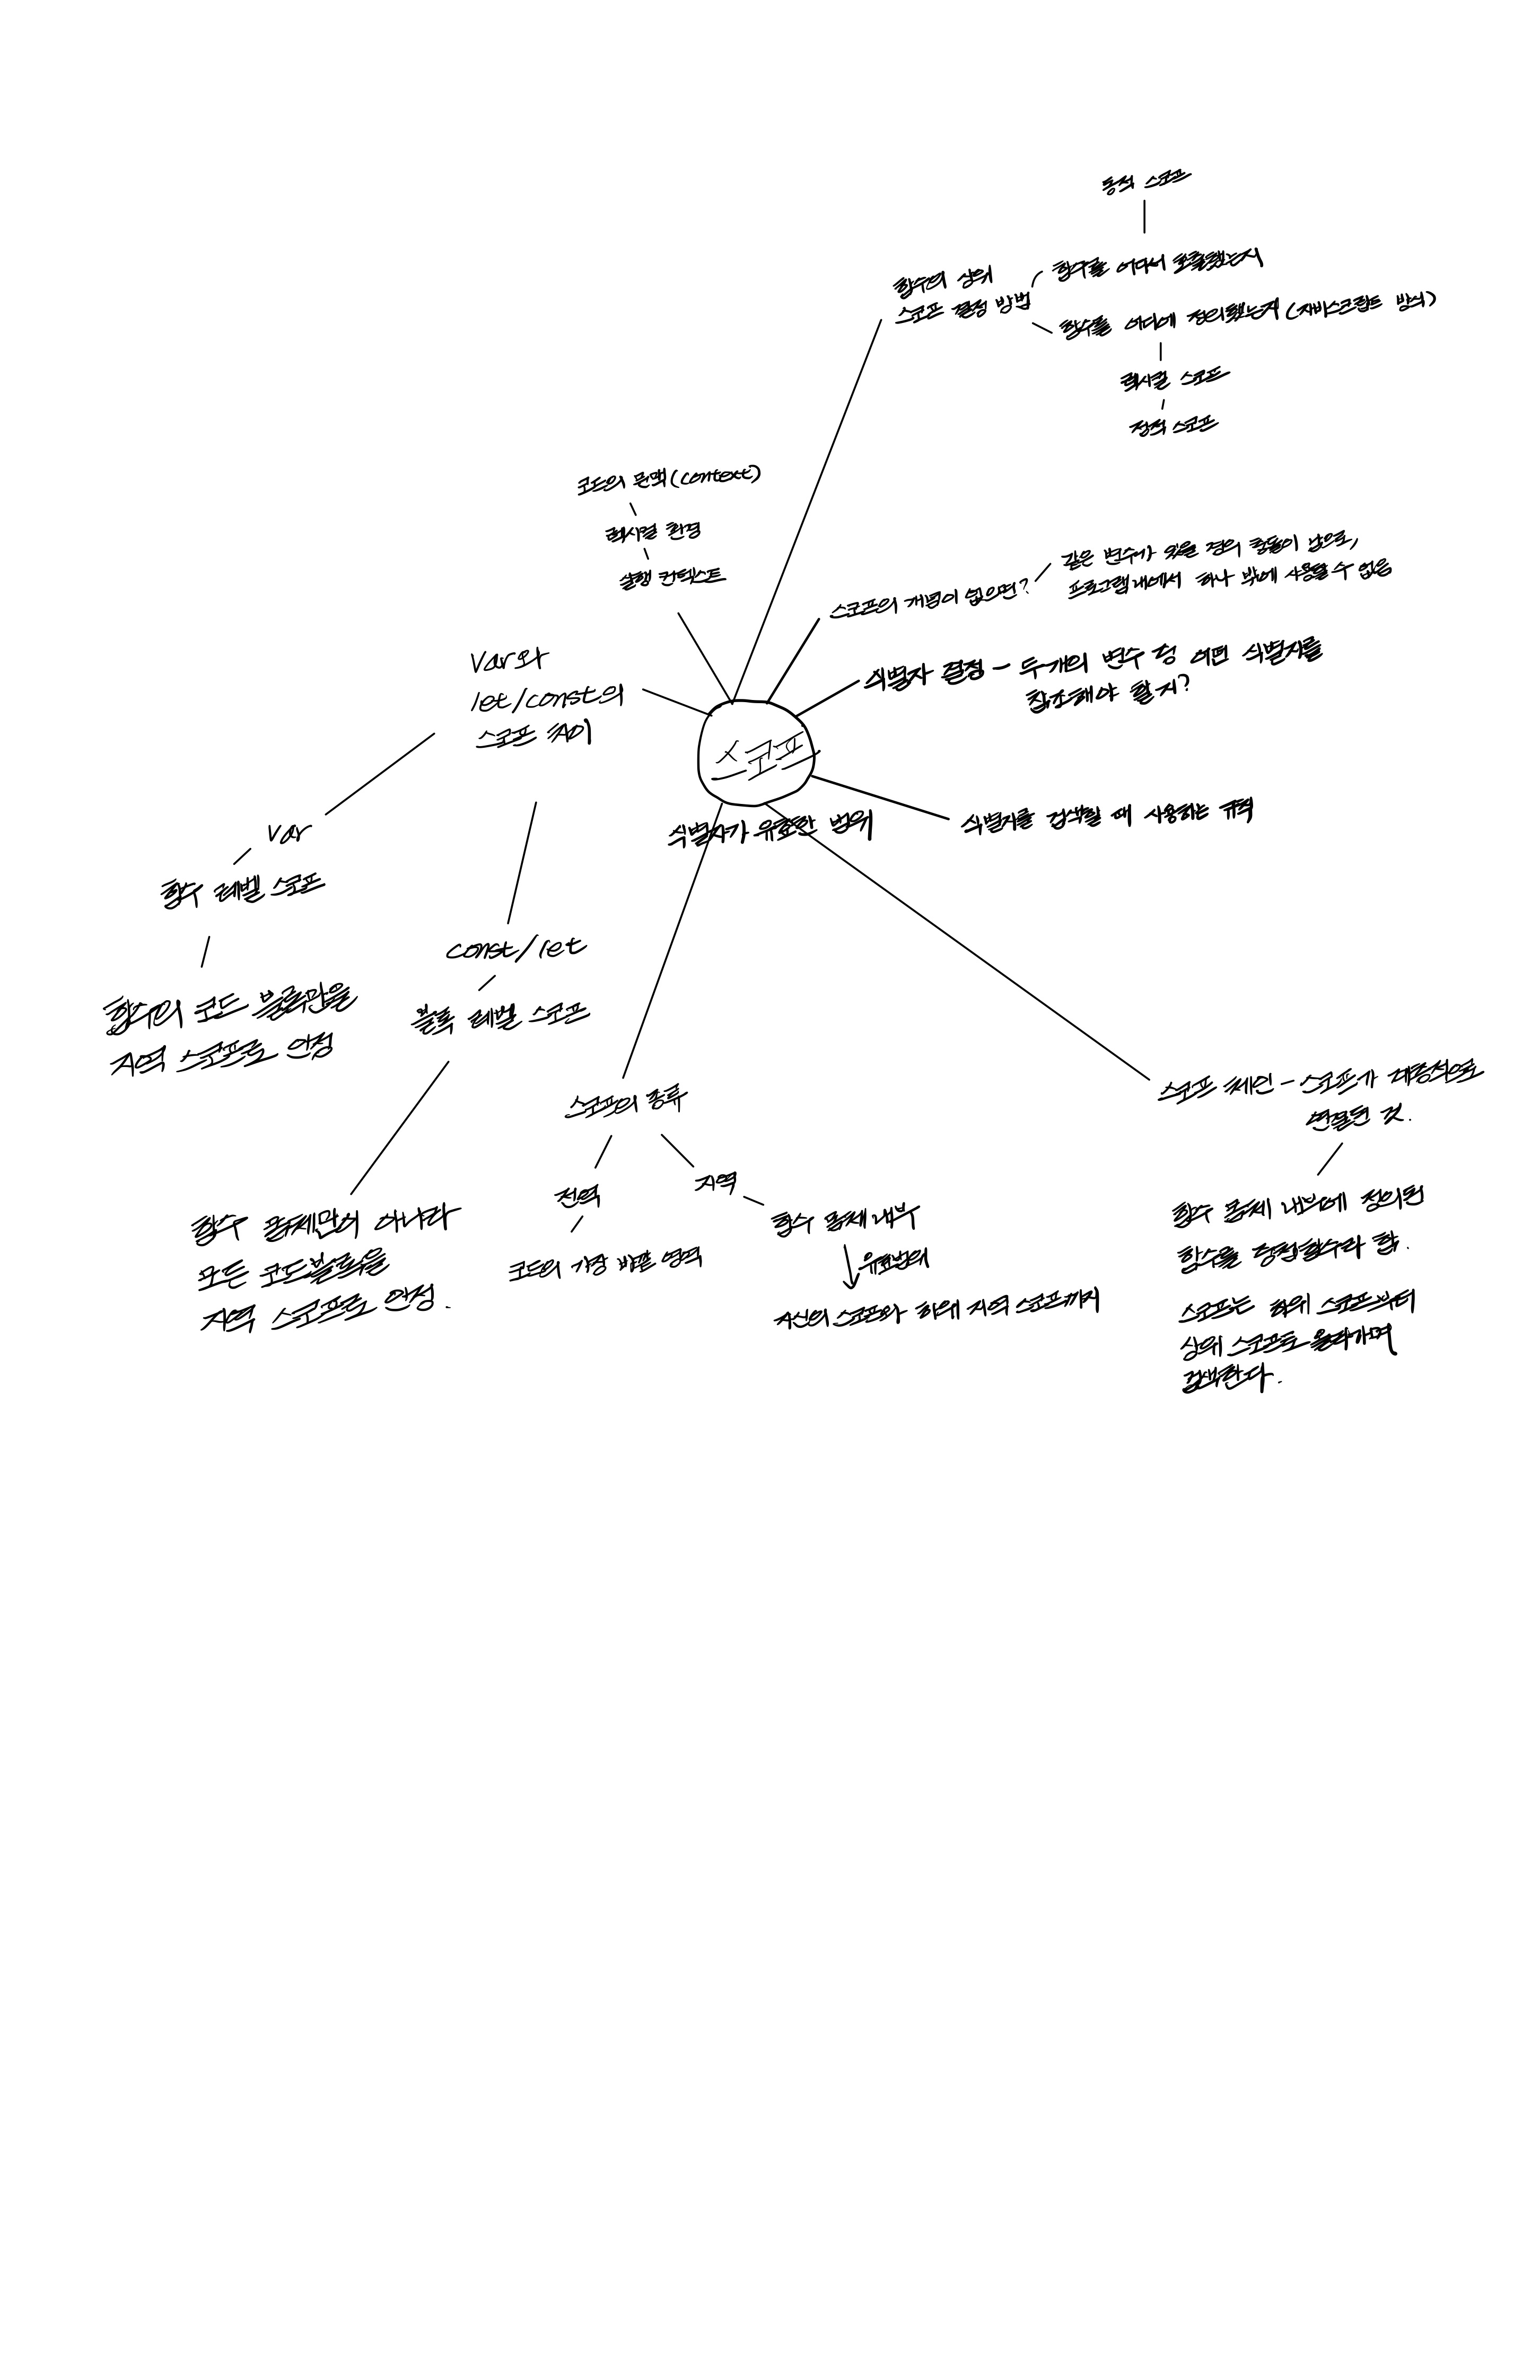 동적 스코프
함수의 상위
스코프 결정 방법
함수를 어디서 호출했는지
함수를 어디에 정의했는지 (자바스크립트 방식)
렉시컬 스코프
정적 스코프
코드의 문맥(context)
렉시컬 환경
실행 컨텍스트
스코프의 개념이 없으면?
같은 변수가 있을 경의 충돌이 남으로,
프로그램 내에서 하나 밖에 사용할 수 없음
var와
let/const의
스코프 차이
식별자 결정 - 두개의 변수 중 어떤 식별자를
참조해야 할지?
스코프
식별자가 유효한 범위
식별자를 검색할 때 사용하는 규칙
var
함수 레벨 스코프
함수의 코드 블록만을
지역 스코프로 인정
const/let
블록 레벨 스코프
함수 몸체만이 아니라
모든 코드블록을
지역 스코프로 인정.
스코프의 종류
전역
코드의 가장 바깥 영역
지역
함수 몸체 내부
유효범위
자신의 스코프와 하위 지역 스코프까지
스코프 체인 - 스코프가 계층적으로
연결된 것.
함수 몸체 내부에 정의된
함수를 중첩함수라 함.
스코프는 하위 스코프부터
상위 스코프로 올라가며
검색한다.